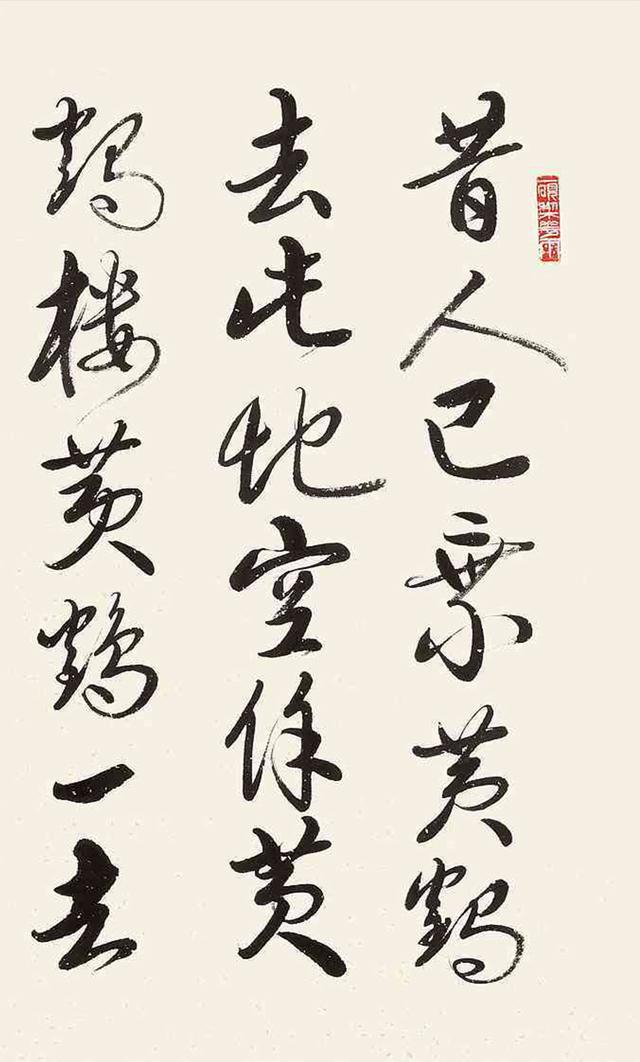 昔人已乘黄鹤
去此地空馀黄
鹤楼黄鹤一去